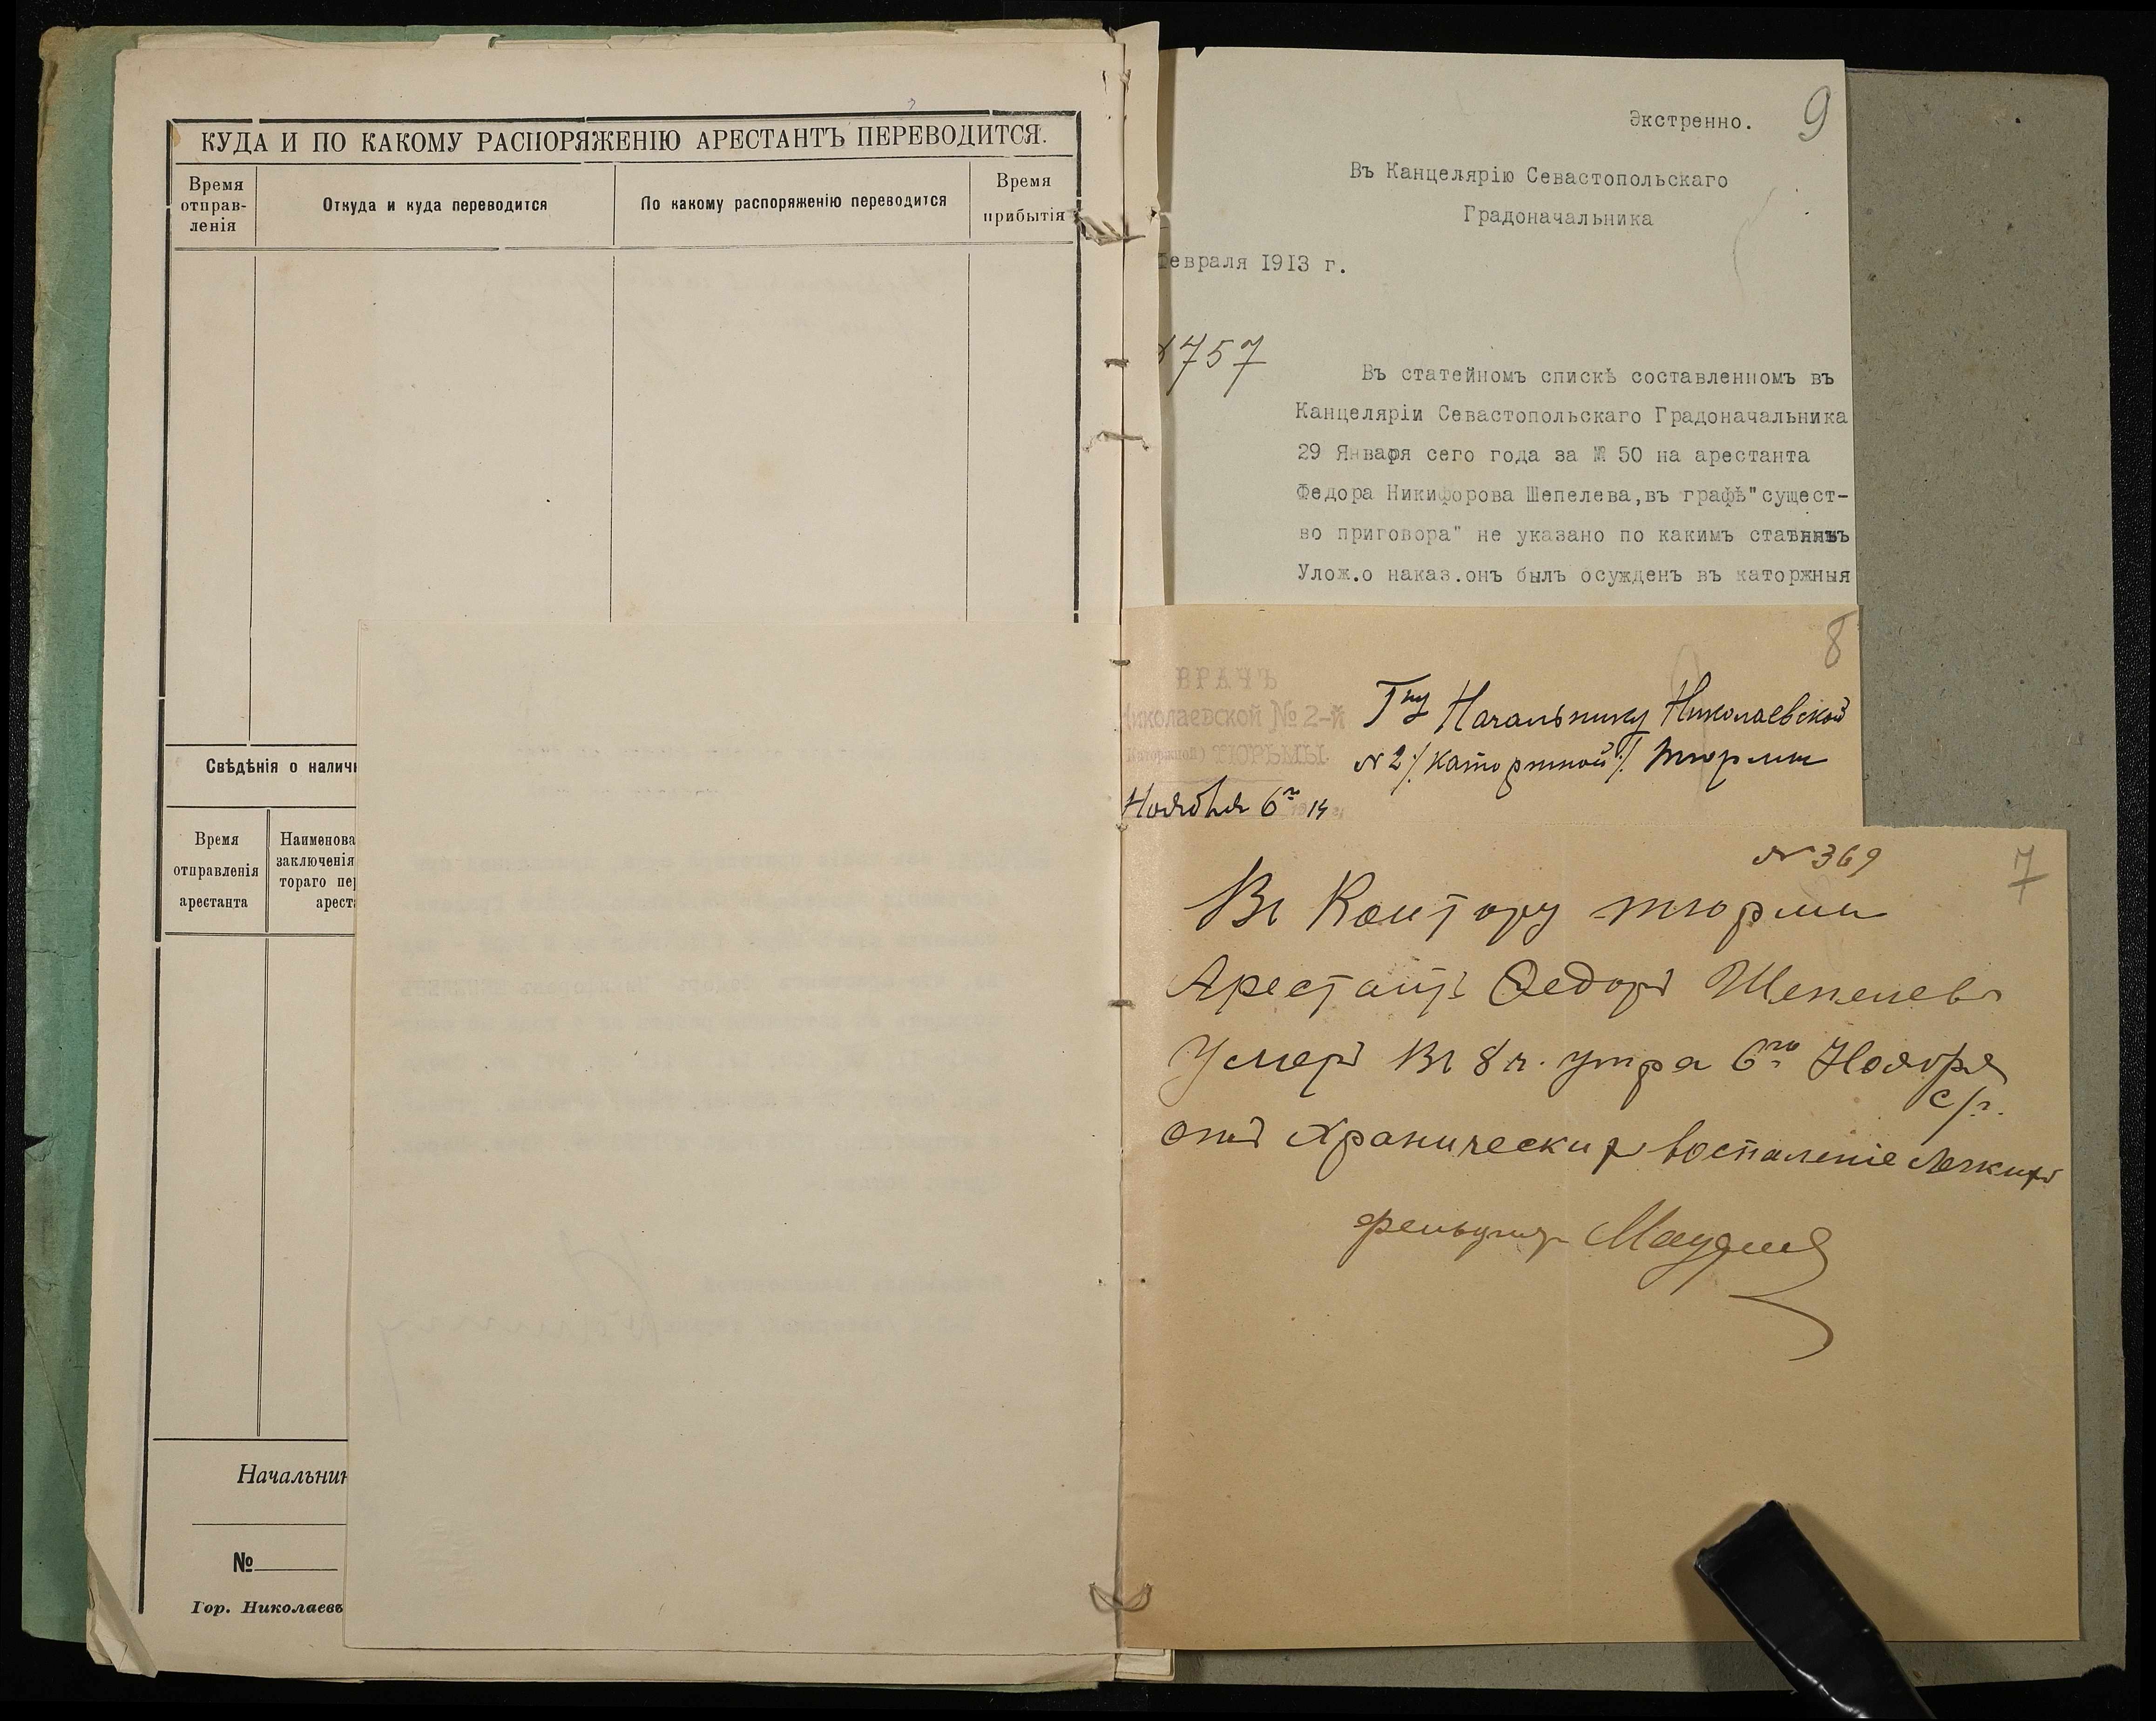 КУДА И ПО КАКОМУ РАСПОРЯЖЕНІЮ АРЕСТАНТЪ ПЕРЕВОДИТСЯ.
Время
отправ-
ленія
Откуда и куда переводится
По какому распоряженію переводится
Время
прибытія
Свѣдѣнія о налич
Время
отправленія
арестанта
Наименова
заключенія
тораго пе
арест
Начальни
№
Гор. Николаевъ
9
Экстренно.
Въ Канцелярію Севастопольскаго
Градоначальника
евраля 1913 г.
1757
Въ статейномъ спискѣ составленномъ въ
Канцеляріи Севастопольскаго Градоначальника
29 Января сего года за № 50 на арестанта
Федора Никифорова Шепелева,въ графѣ"сущест-
во приговора" не указано по какимъ
Улож.о наказ.онъ былъ осужденъ въ каторжныя
8
ВРАЧЪ
Николаевской № 2-й
(Каторжной) ТЮРЬМЫ.
Ноября 6го 14
Гну Начальнику Николаевской
№ 2 /каторжной/ тюрьмы
7
№ 369
Въ Контору тюрмы
Арестантъ Федоръ Шепелевъ
Умеръ Въ 8 ч. утра 6го Ноября
с/г.
отъ Хроническихъ воспаленіе легкихъ
фельдшер